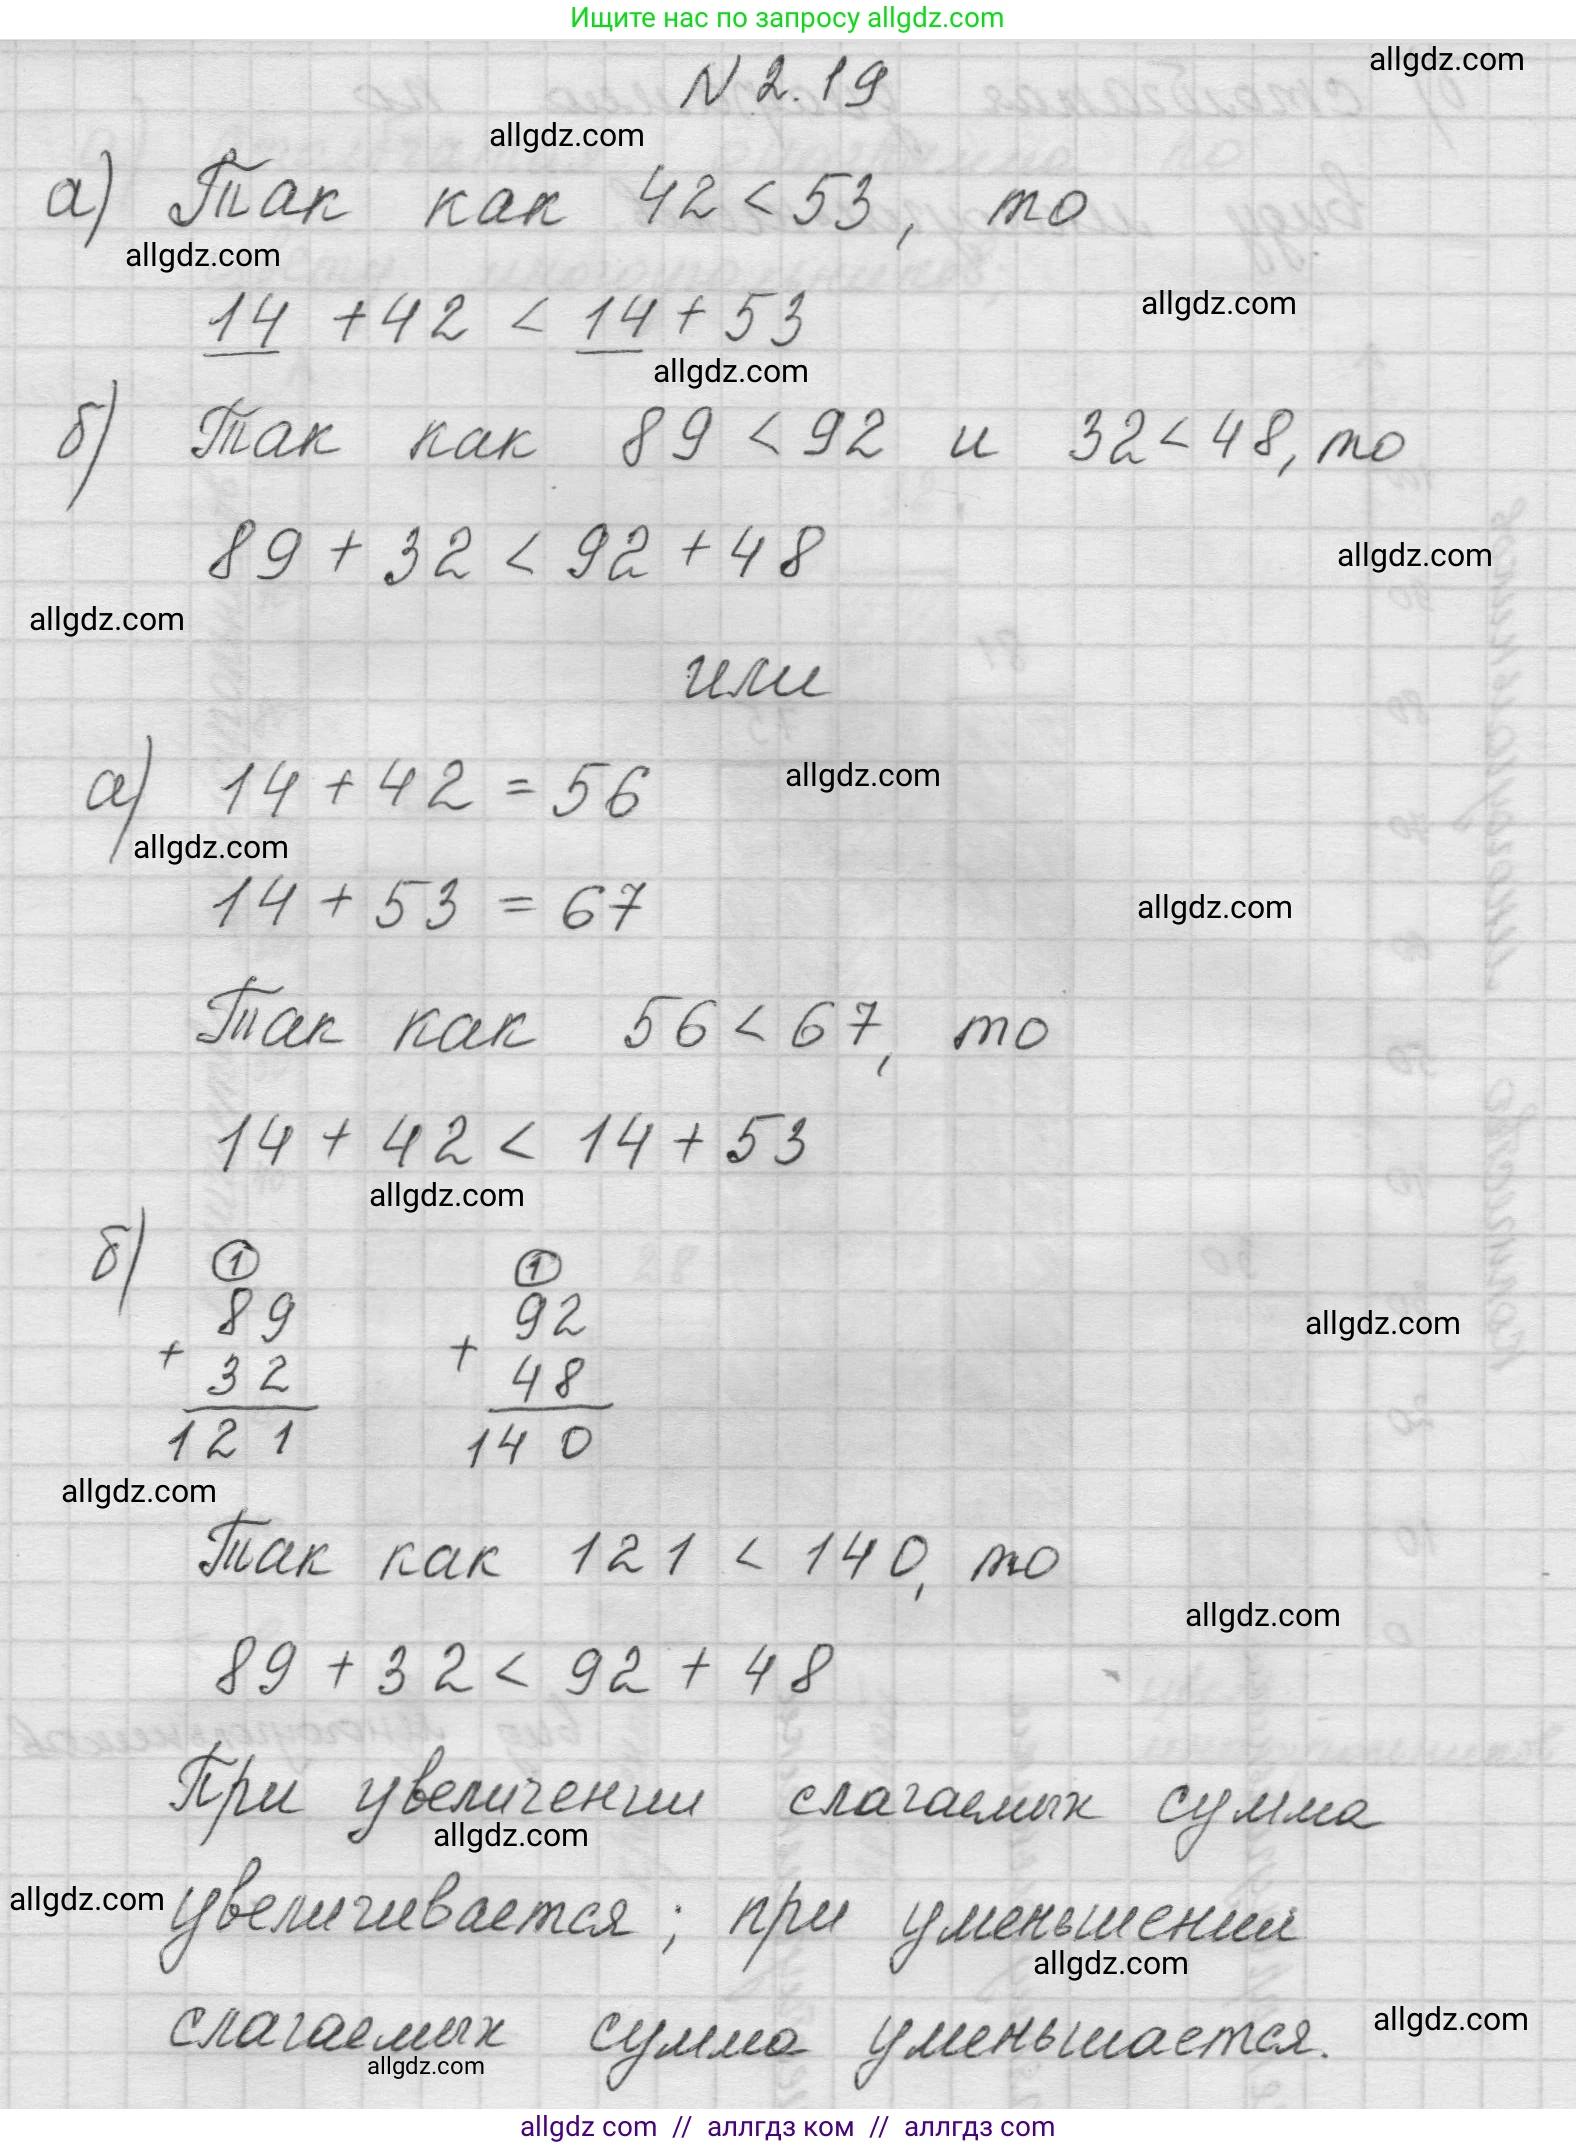 Ищите нас по запросу allgdz.com
allgdz.com
N 2.19
allgdz.com
а) Так как 42 < 53, то
allgdz.com
allgdz.com
14 + 42 < 14 + 53
allgdz.com
б) Так как 89 < 92 и 32 < 48, то
89 + 32 < 92 + 48
allgdz.com
allgdz.com
или
allgdz.com
а) 14 + 42 = 56
allgdz.com
14 + 53 = 67
allgdz.com
Так как 56 < 67, то
14 + 42 < 14 + 53
allgdz.com
б) 1 1
89 92
allgdz.com
+ +
32 48
121 140
allgdz.com
Так как 121 < 140, то
allgdz.com
89 + 32 < 92 + 48
При увеличении слагаемых сумма
allgdz.com
allgdz.com
увеличивается; при уменьшении
allgdz.com
слагаемых сумма уменьшается.
allgdz.com
allgdz.com
allgdz.com // аллгдз ком // аллгдз com